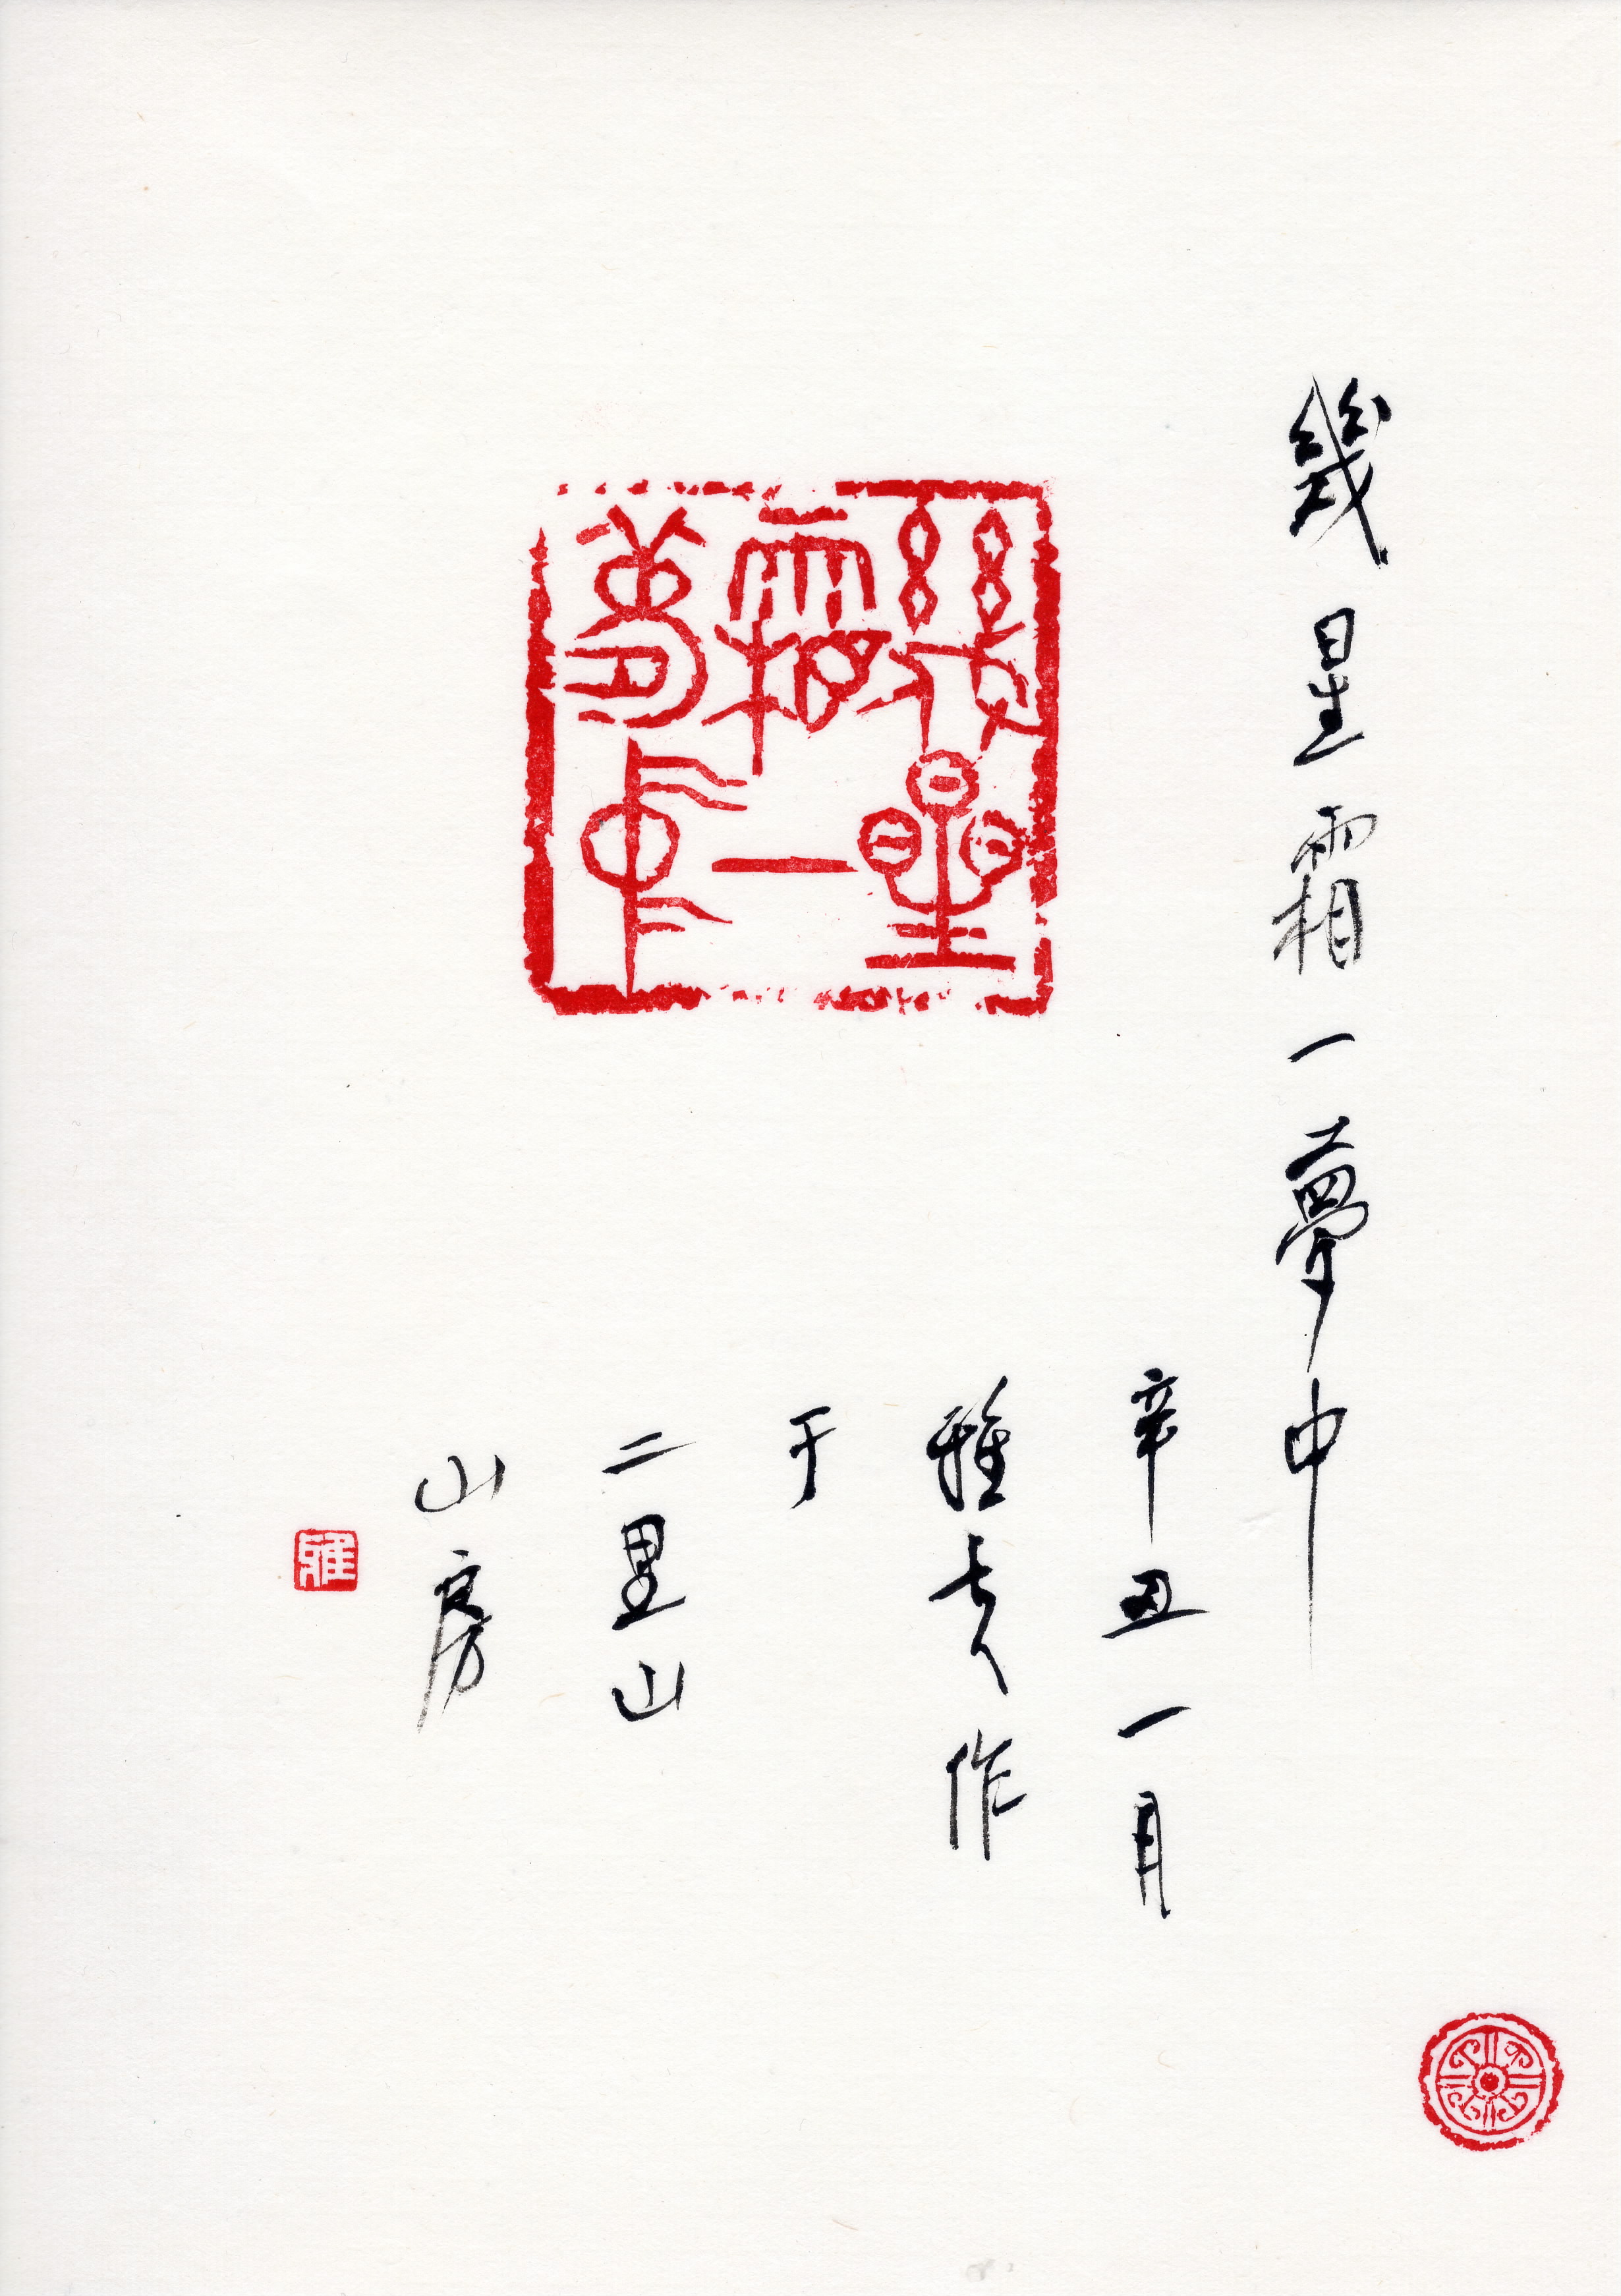 幾星霜一夢中
辛丑一月
雅
作
于
二里山
山房
幾星
霜一
夢中
雅